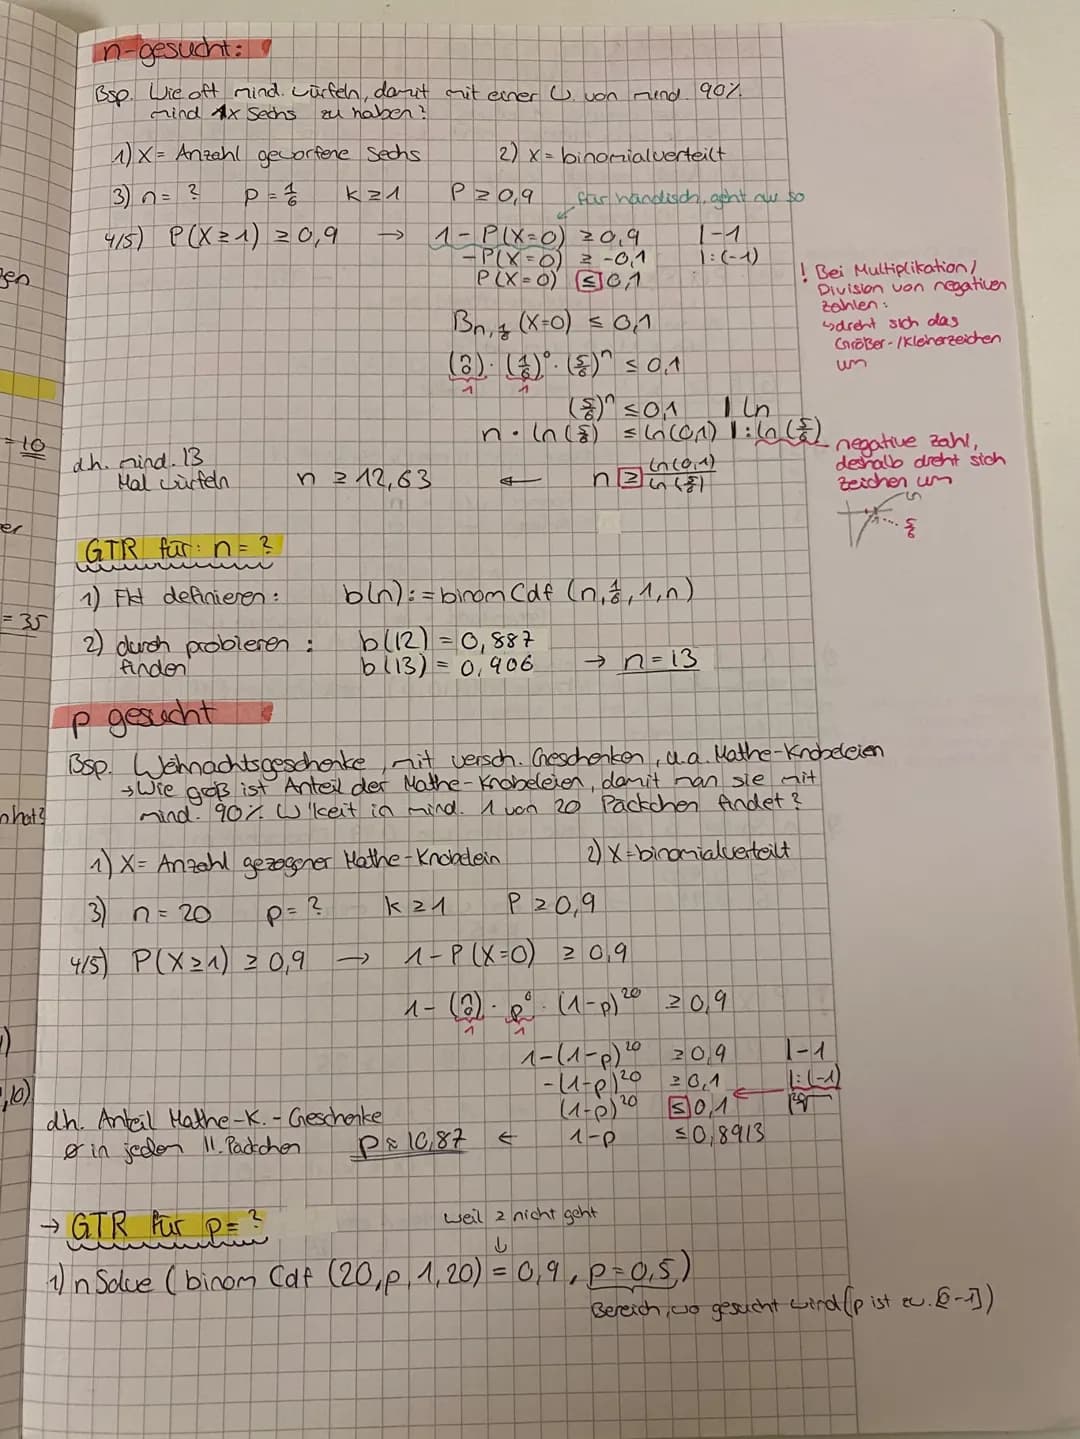 n-gesucht:
Bsp. Wie oft mind. würfeln, damit mit einer W. von mind. 90%
mind 1x Sechs zu haben?
1) X = Anzahl geworfene Sechs 2) X = binomialverteilt
3) n = ? p = 1/6 k ≥ 1 P ≥ 0,9 für händisch, geht nur so
4/5) P(X ≥ 1) ≥ 0,9 → 1 - P(X=0) ≥ 0,9 |-1
-P(X=0) ≥ -0,1 |:(-1)
P(X=0) ≤ 0,1
! Bei Multiplikation/
Division von negativen
zahlen:
↳ dreht sich das
Größer-/Kleinerzeichen
um
B n, 1/6 (X=0) ≤ 0,1
(n 0) · (1/6)^0 · (5/6)^n ≤ 0,1
1 1
(5/6)^n ≤ 0,1 | ln
n · ln(5/6) ≤ ln(0,1) |: ln(5/6)
negative zahl,
deshalb dreht sich
zeichen um
ln
5/6
d.h. mind. 13
Mal würfeln n ≥ 12,63 ← n ≥ ln(0,1)/ln(5/6)
GTR für: n = ?
1) Fkt definieren: b(n) := binomCdf (n, 1/6, 1, n)
2) durch probieren: b(12) = 0,887
finden b(13) = 0,906 → n = 13
p gesucht
Bsp. Weihnachtsgeschenke, mit versch. Geschenken, u.a. Mathe-Knobeleien
→ Wie groß ist Anteil der Mathe-Knobeleien, damit man sie mit
mind. 90% W'keit in mind. 1 von 20 Päckchen findet?
1) X = Anzahl gezogener Mathe-Knobelein 2) X = binomialverteilt
3) n = 20 p = ? k ≥ 1 P ≥ 0,9
4/5) P(X ≥ 1) ≥ 0,9 → 1 - P(X=0) ≥ 0,9
1 - (n 0) · p^0 · (1-p)^20 ≥ 0,9
1 1
1-(1-p)^20 ≥ 0,9 |-1
-(1-p)^20 ≥ 0,1 |:(-1)
(1-p)^20 ≤ 0,1 |20√
d.h. Anteil Mathe-K.-Geschenke
ø in jedem 11. Päckchen p ≈ 10,87 ← 1-p ≤ 0,8913
→ GTR für p = ?
weil ≥ nicht geht
↓
1) nSolve (binom Cdf (20,p,1,20) = 0,9, p=0,5)
Bereich, wo gesucht wird (p ist zw. [0-1])
zen
=10
er
=35
n hat?
)
,10)